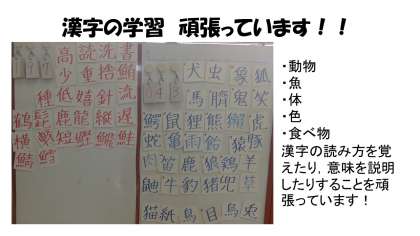 漢字の学習 頑張っています！！
高読洗書
少重捨鮪
種低嬉針流
鶴髭鹿龍縦遅
横繁短鰹鯛鮭
鯖鱈
犬虫象狐
馬 鬼笑
鰐鼠狸熊 虎
蛇亀雨飴 猿豚
肉笛鹿狼鶏羊
牛豹猪兜草
猫紙鳥目烏兎
・動物
・魚
・体
・色
・食べ物
漢字の読み方を覚
えたり，意味を説明
したりすることを頑
張っています！